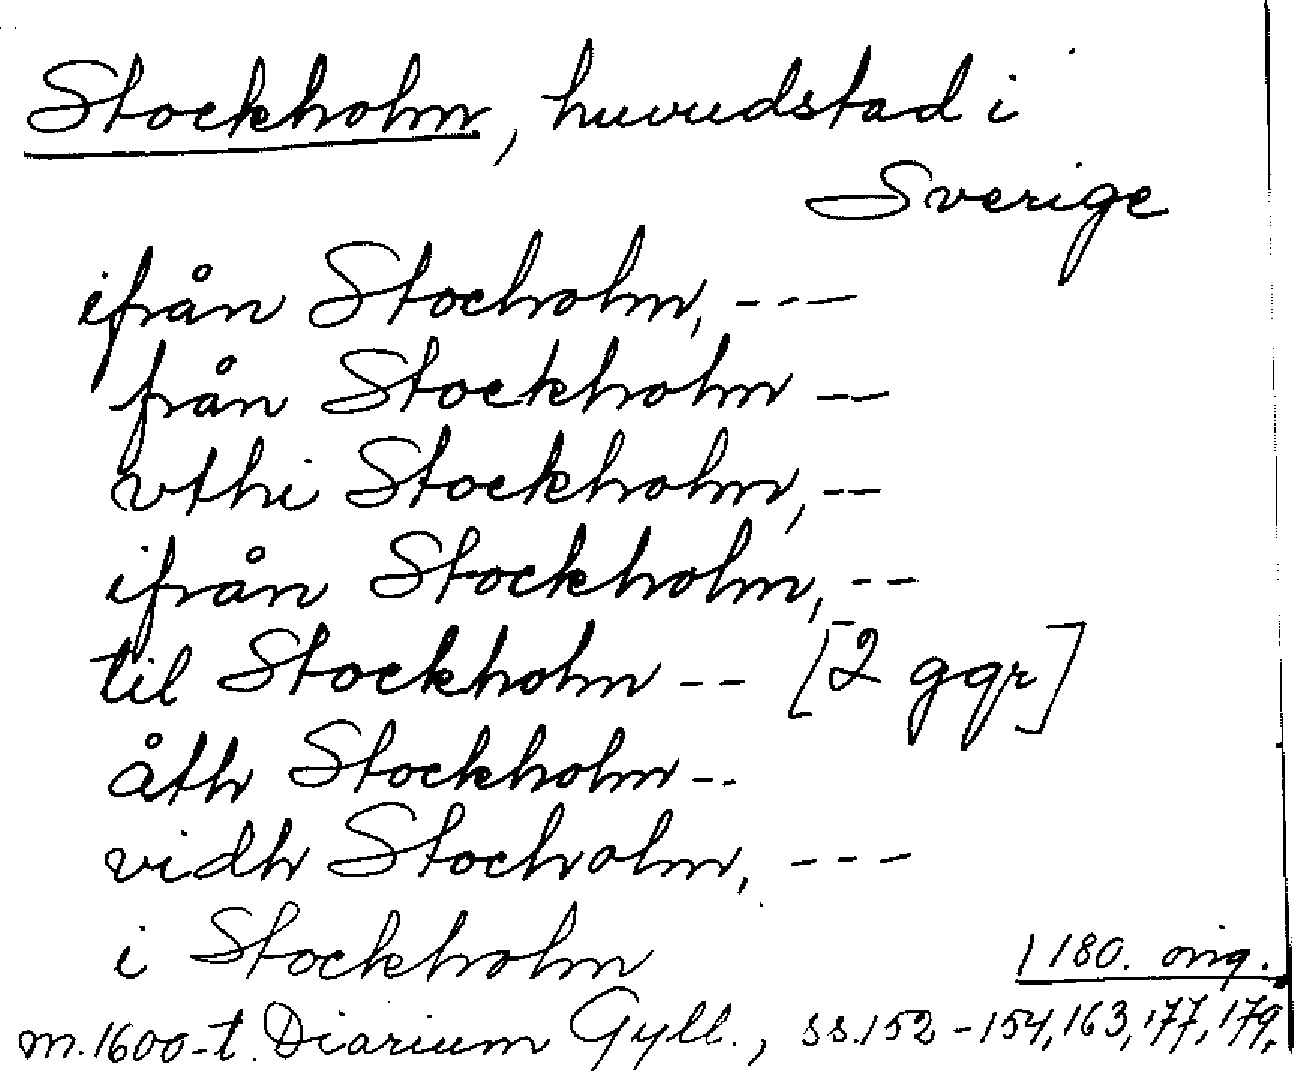 Stockholm, huvudstad i
Sverige
ifrån Stocholm, ---
från Stockholm --
vthi Stockholm, --
ifrån Stockholm, --
til Stockholm -- [2 ggr]
åth Stockholm --
vidh Stocholm, ---
i Stockholm
180. orig.
m.1600-t. Diarium Gyll., ss.152-154, 163, 177, 179,